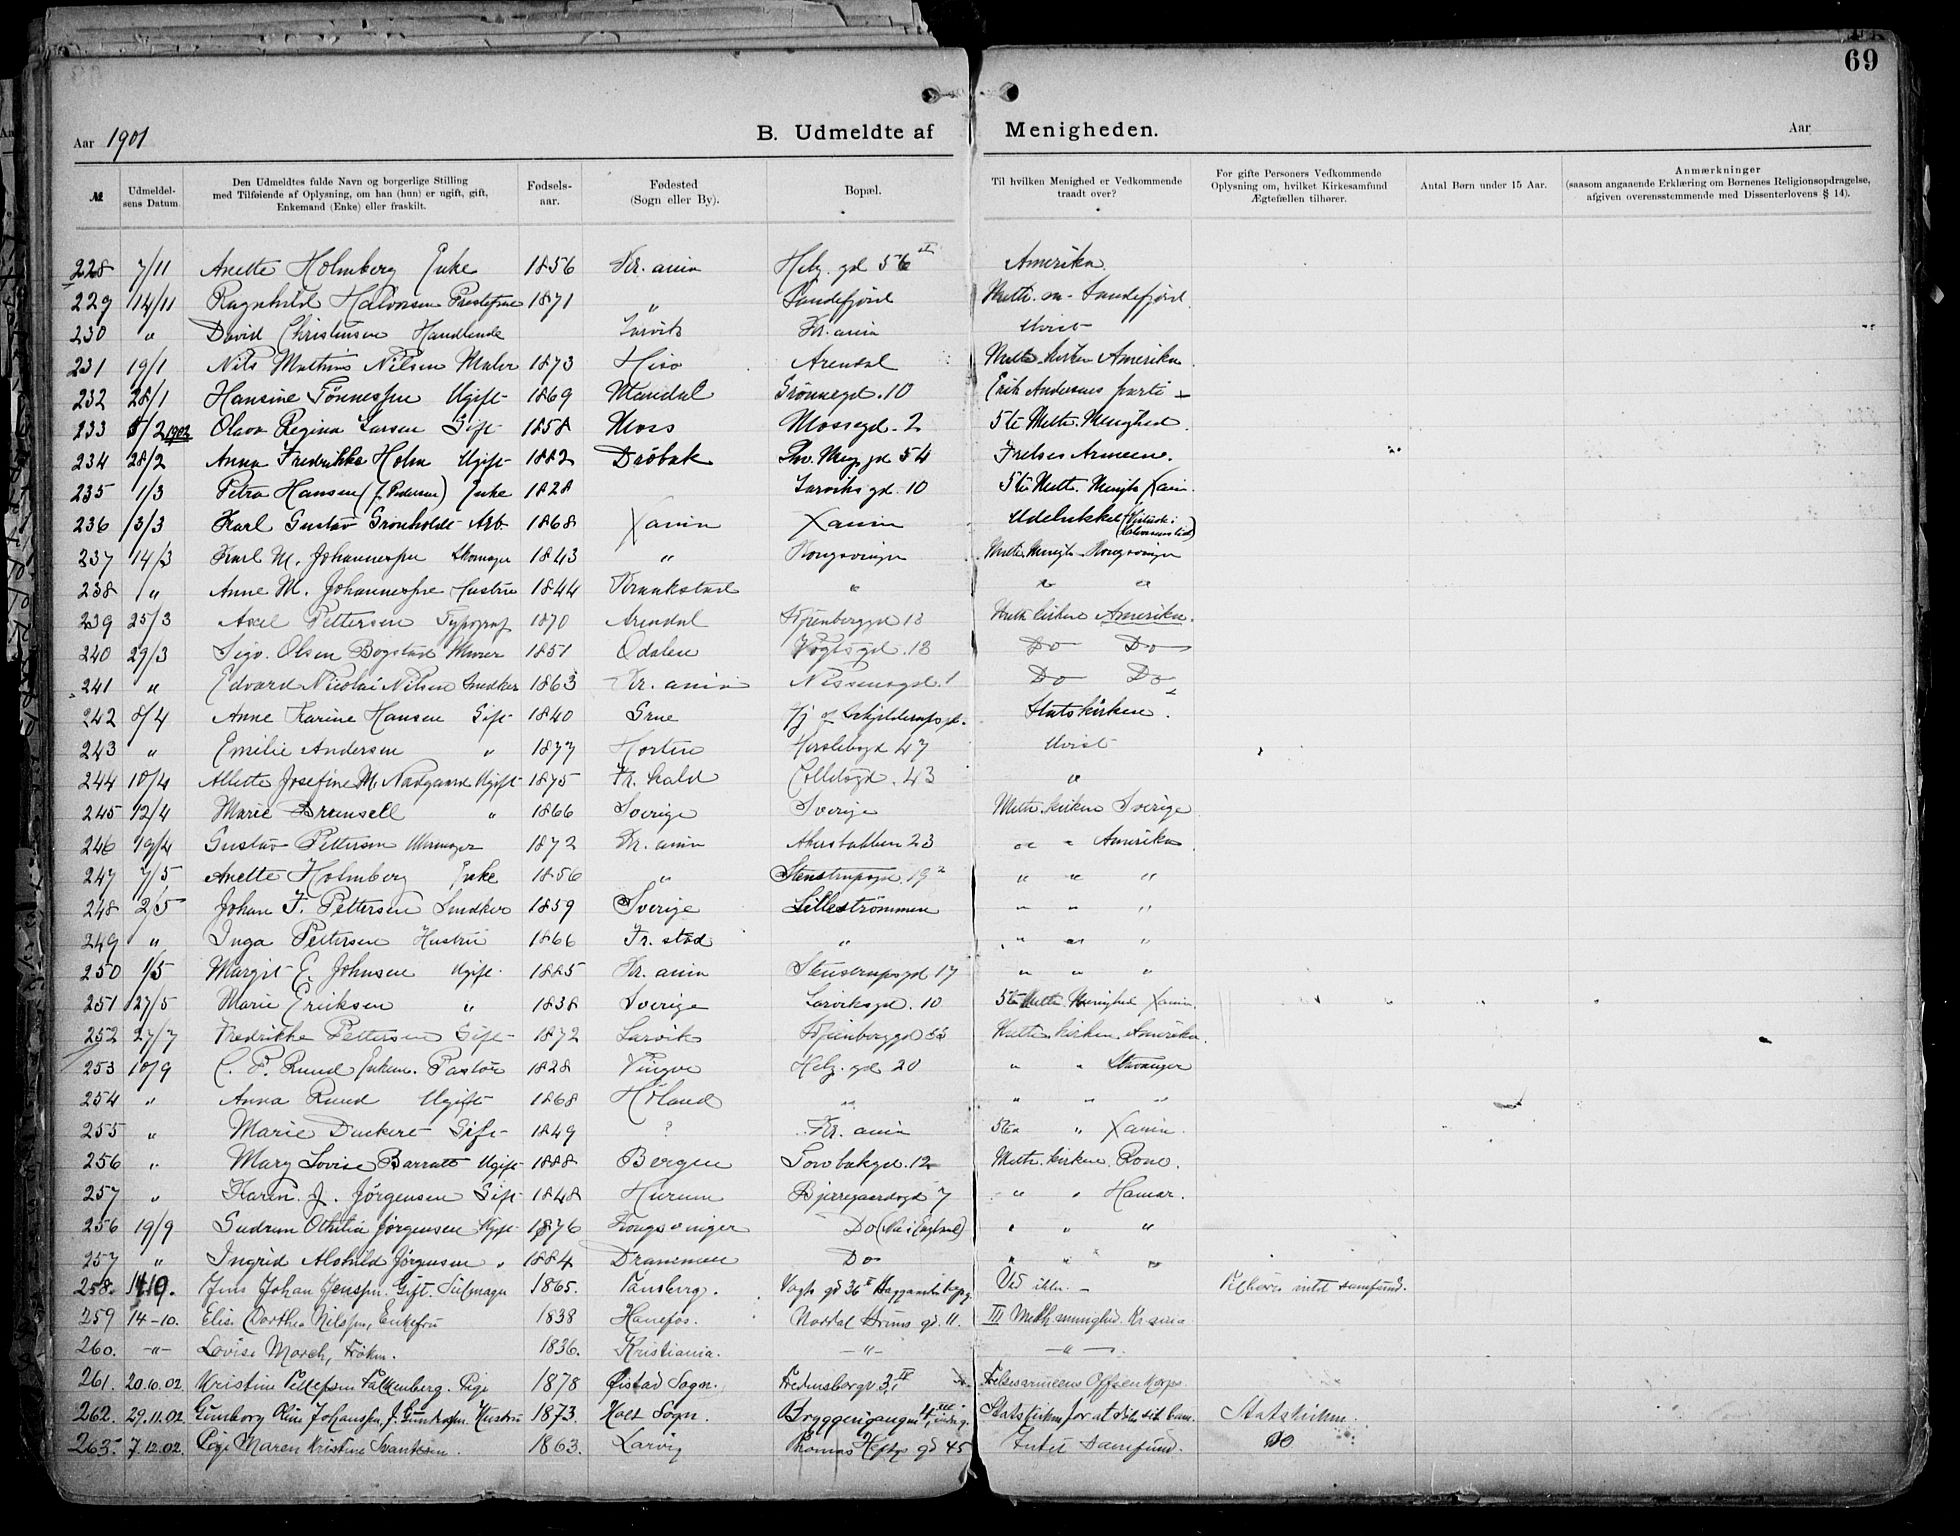 69
Aar 1901 B. Udmeldte af Menigheden. Aar
№ Udmeldelsens Datum. Den Udmeldtes fulde Navn og borgerlige Stilling med Tilføiende af Oplysning, om han (hun) er ugift, gift, Enkemand (Enke) eller fraskilt. Fødselsaar. Fødested (Sogn eller By). Bopæl. Til hvilken Menighed er Vedkommende traadt over? For gifte Personers Vedkommende Oplysning om, hvilket Kirkesamfund Ægtefællen tilhører. Antal Børn under 15 Aar. Anmærkninger (saasom angaaende Erklæring om Børnenes Religionsopdragelse, afgiven overensstemmende med Dissenterlovens § 14).
228 7/11 Anette Holmberg Enke 1856 Kr.ania Helg. gd 56 II Amerika
229 14/11 Ragnhild Halvorsen 1871 " Sandefjord Meth. m- Sandefjord
230 " David Christensen Handlende Larvik Kr.ania Uvist
231 19/1 Nils Mathius Nilsen Maler 1873 Hisø Arendal Meth. kirken Amerika
232 28/1 Hansine Tønnessen Ugift 1869 Mandal Grønnegd. 10 Erik Andersens parti
233 5/2 1902 Olava Regina Larsen Gift 1858 Moss Mossegd. 2 5te Meth. Menighed
234 28/2 Anna Fredrikke Holm Ugift 1882 Drøbak Thv. Meys gd 54 Frelses Armeen.
235 1/3 Petra Hansen (f. Pedersen) Enke 1828 Larviksgd. 10 5te Meth. Menigh Xania
236 13/3 Karl Gustav Grønholdt Arb 1868 Xania Xania Udelukket
237 14/3 Karl M. Johannessen Skomager 1843 " Kongsvinger Meth. Menigh. Kongsvinger
238 " Anne M. Johannessen Hustru 1844 " " "
239 25/3 Axel Pettersen Typograf 1870 Arendal Stjenberggd 18 Meth kirken Amerika.
240 29/3 Sigv. Olsen Bogstad Murer 1851 Odalen Vogtsgd. 18 Do Do
241 " Edvard Nicolai Nilsen Snedker 1863 Kr.ania Nissensgd. 1 Do Do
242 8/4 Anne Karine Hansen Gift 1840 Grue Statskirken.
243 " Emilie Andersen " 1877 Horten Herslebsgd 47 Uvist
244 10/4 Alette Josefine M. Nadgaard Ugift 1875 Fr. hald Colletsgd. 43 "
245 12/4 Marie Dramsell " 1866 Sverige Sverige Meth. kirken Sverige
246 19/4 Gustav Pettersen Urmager 1872 Kr.ania Akersbakken 23 " " Amerika
247 7/5 Anette Holmberg Enke 1856 " Stenstrupsgd. 19 " " "
248 2/5 Johan F. Pettersen Snedker 1859 Sverige Lillestrømmen " " "
249 " Inga Pettersen Hustru 1866 Fr. stad " " " "
250 1/5 Margit E. Johnsen Ugift 1885 Kr.ania Stenstrupsgd 17 " " "
251 27/5 Marie Eriksen " 1838 Sverige Larviksgd. 10 5te Meth. Menighed Xania
252 27/7 Fredrikke Pettersen Gift 1872 Larvik Stjenberggd Meth. kirken Amerika
253 10/9 C. P. Ruud Enkem. Pastor 1828 Helg. gd 20 " " Stavanger
254 " Anna Ruud Ugift 1868 Høland " " " "
255 " Marie Dunkert Gift 1849 ? Kr.ania 5te " Xania
256 " Mary Lovise Barratt Ugift 1888 Bergen Torvbakgd. 12 Meth. kirken
257 " Karen J. Jørgensen Gift 1848 Hurum Bjerregaardsgd 7 " " Hamar.
256 19/9 Gudrun Othilie Jørgensen Ugift 1876 Kongsvinger Do (Nu i England) " " "
257 " Ingrid Alshild Jørgensen " 1884 Drammen Do " " "
258. 14/10. Jens Johan Jensen. Gift. 1865. Tønsberg. Vogts gd 36 II Ved ikke. Tilhører intet samfund.
259 14-10. Elis Dorthea Nilssen, Enkefru 1838 Hønefos. Nordal Bruns gd. 11. III Meth menighed Kr.ania
260. -"- Lovise Morch, Frøken. 1836. Kristiania. -"- -"-
261. 20.10.02. Kristine Tellefsen Falkenberg. Pige 1878 Øistad Sogn. Fredensborgv 31 IV Frelsesarmeens Korps.
262. 29.11.02. Gunborg Oline Johanssen, f. Hustru 1873. Holt Sogn. Statskirken for at Statskirken.
263. 7.12.02. Pige Maren Kristine Svantesen. 1863. Larvig Thomas Heftys gd 45 Intet samfund. Do